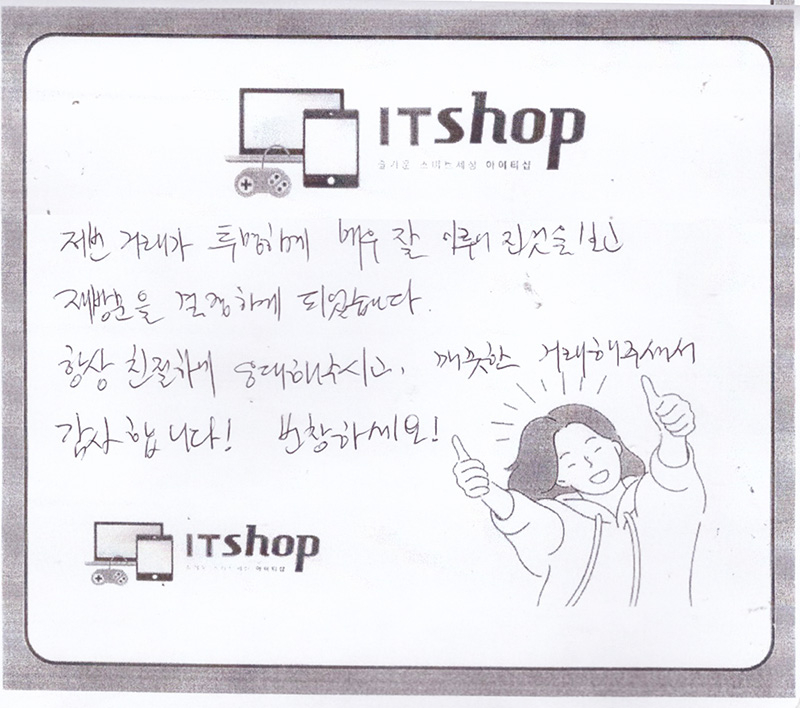 ITshop
즐거운 스마트세상 아이티샵
저번 거래가 투명하게 매우 잘 이루어 진것을 보고
재방문을 결정하게 되었습니다.
항상 친절하게 응대해주시고, 깨끗한 거래해주셔서
감사합니다! 번창하세요!
ITshop
아이티샵